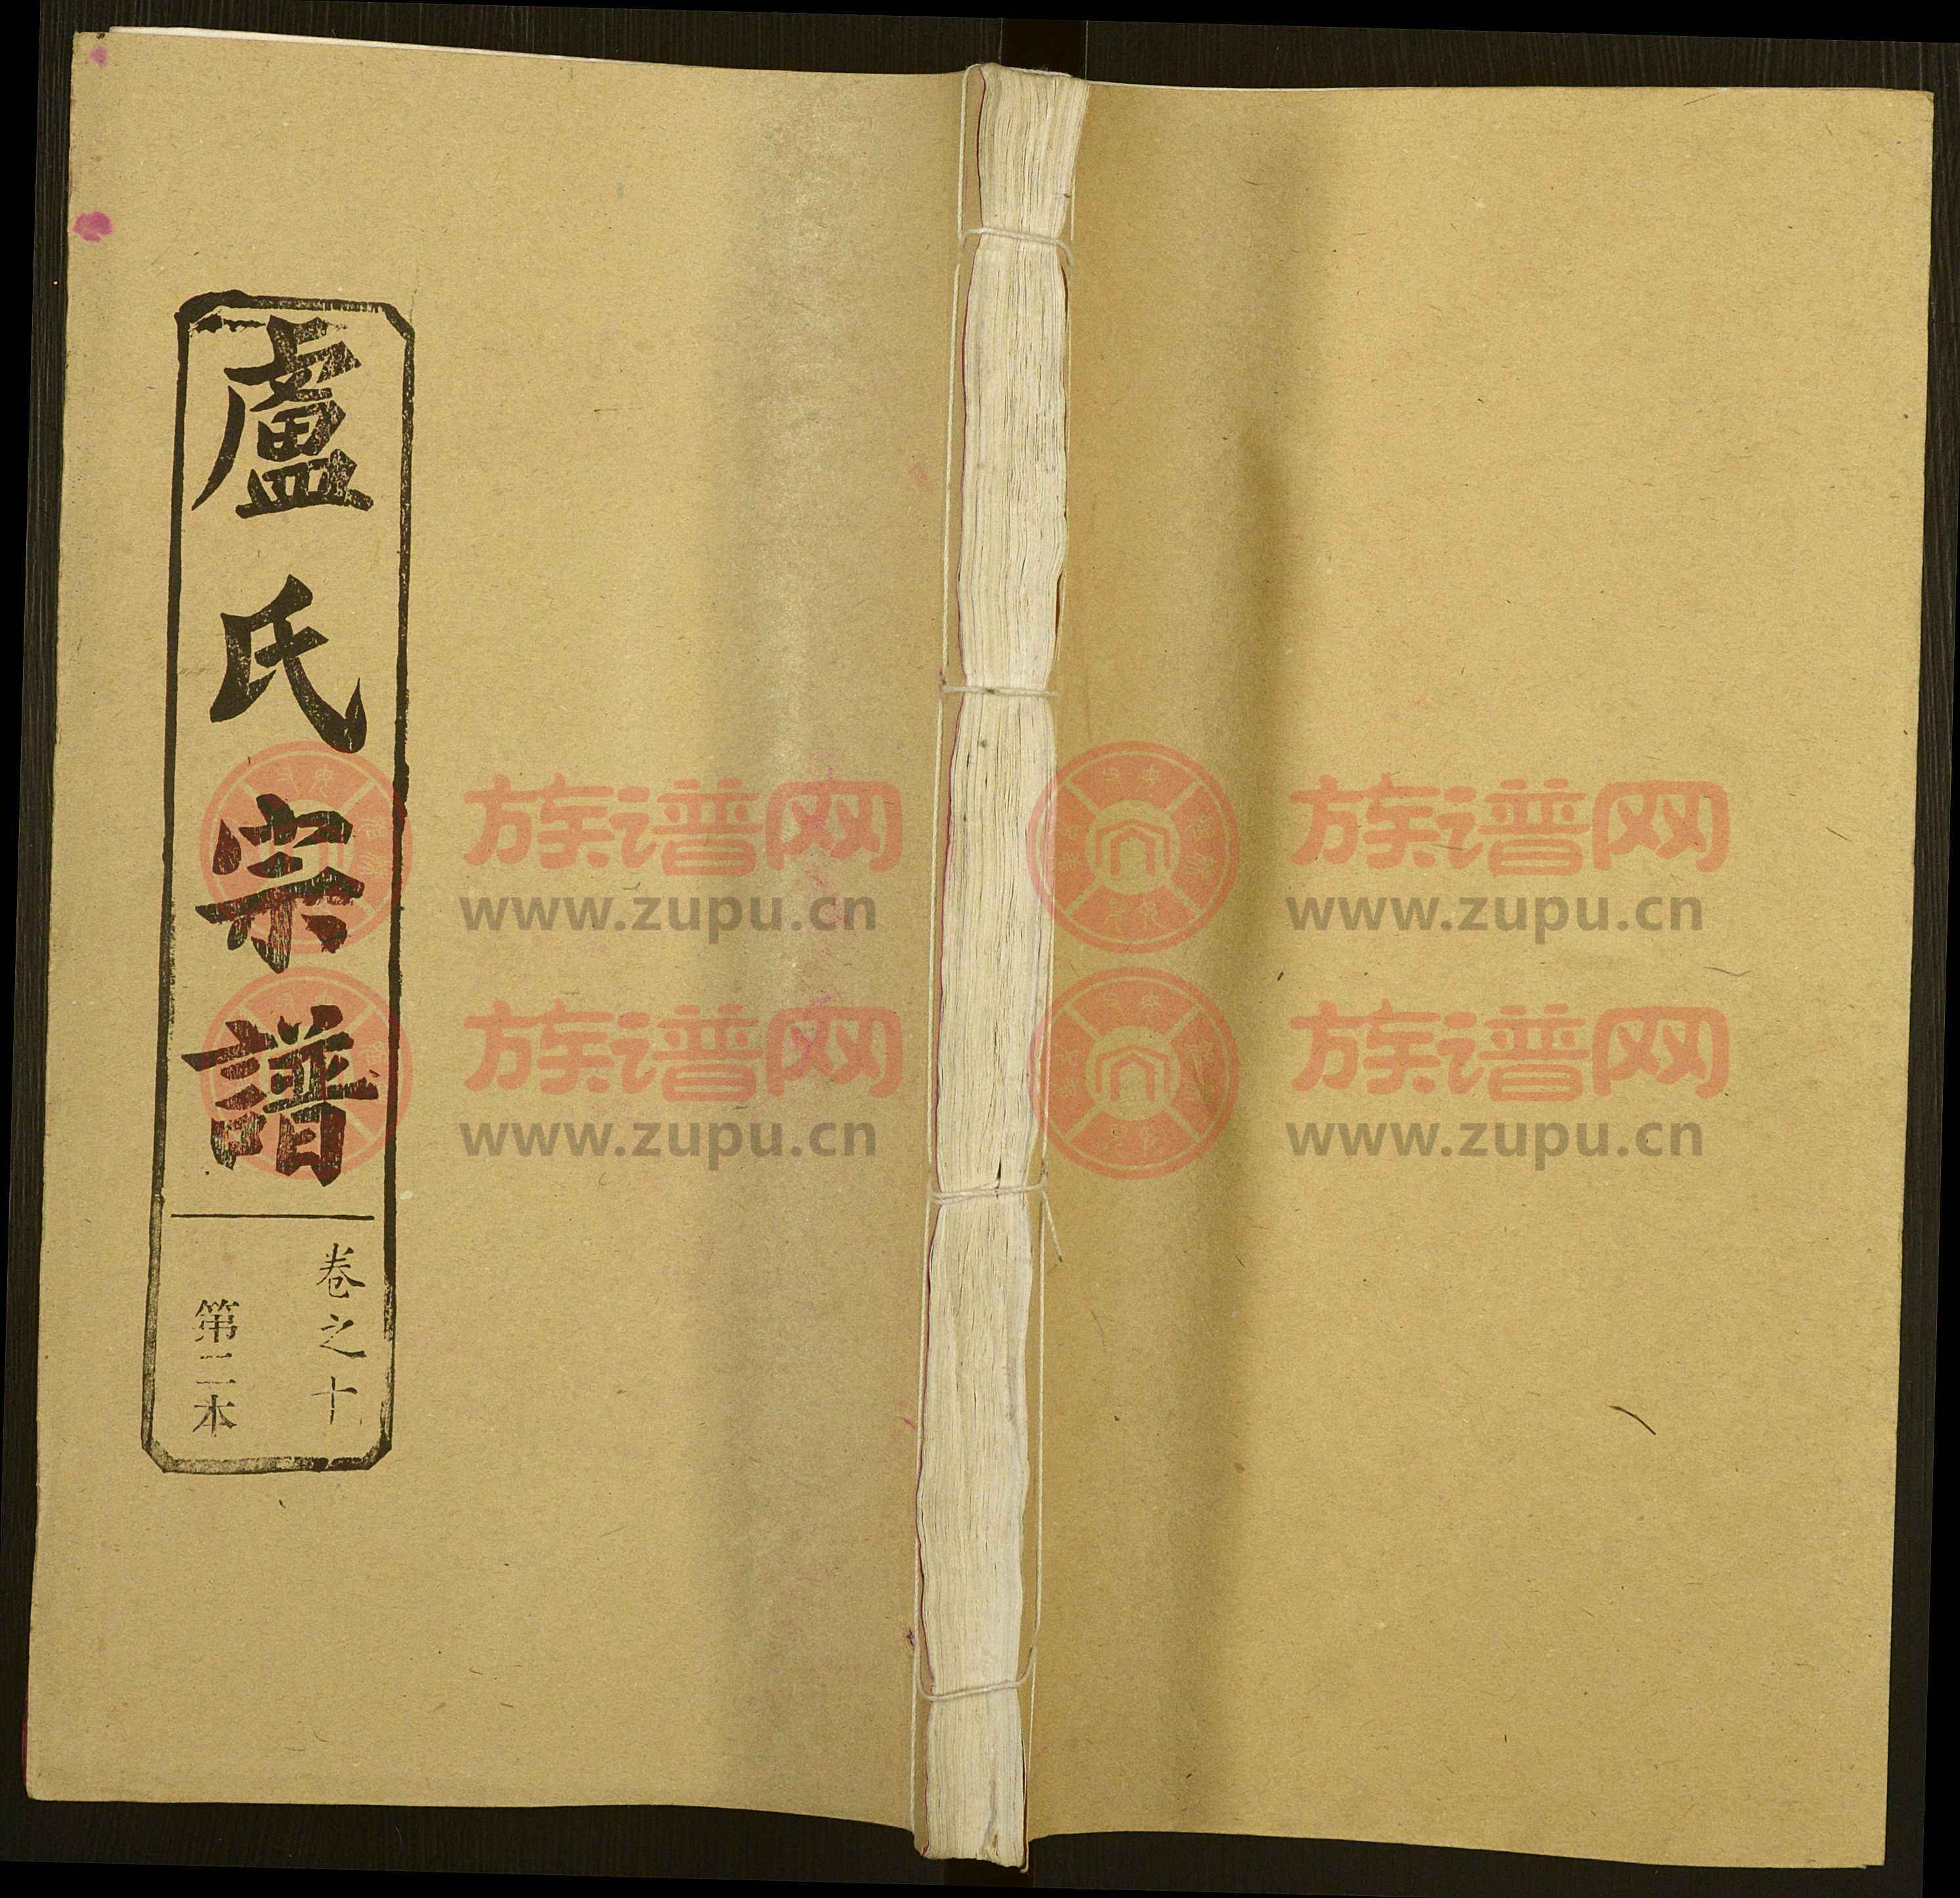 盧氏宗譜
卷之十
第二本
族谱网
www.zupu.cn
族谱网
www.zupu.cn
族谱网
www.zupu.cn
族谱网
www.zupu.cn